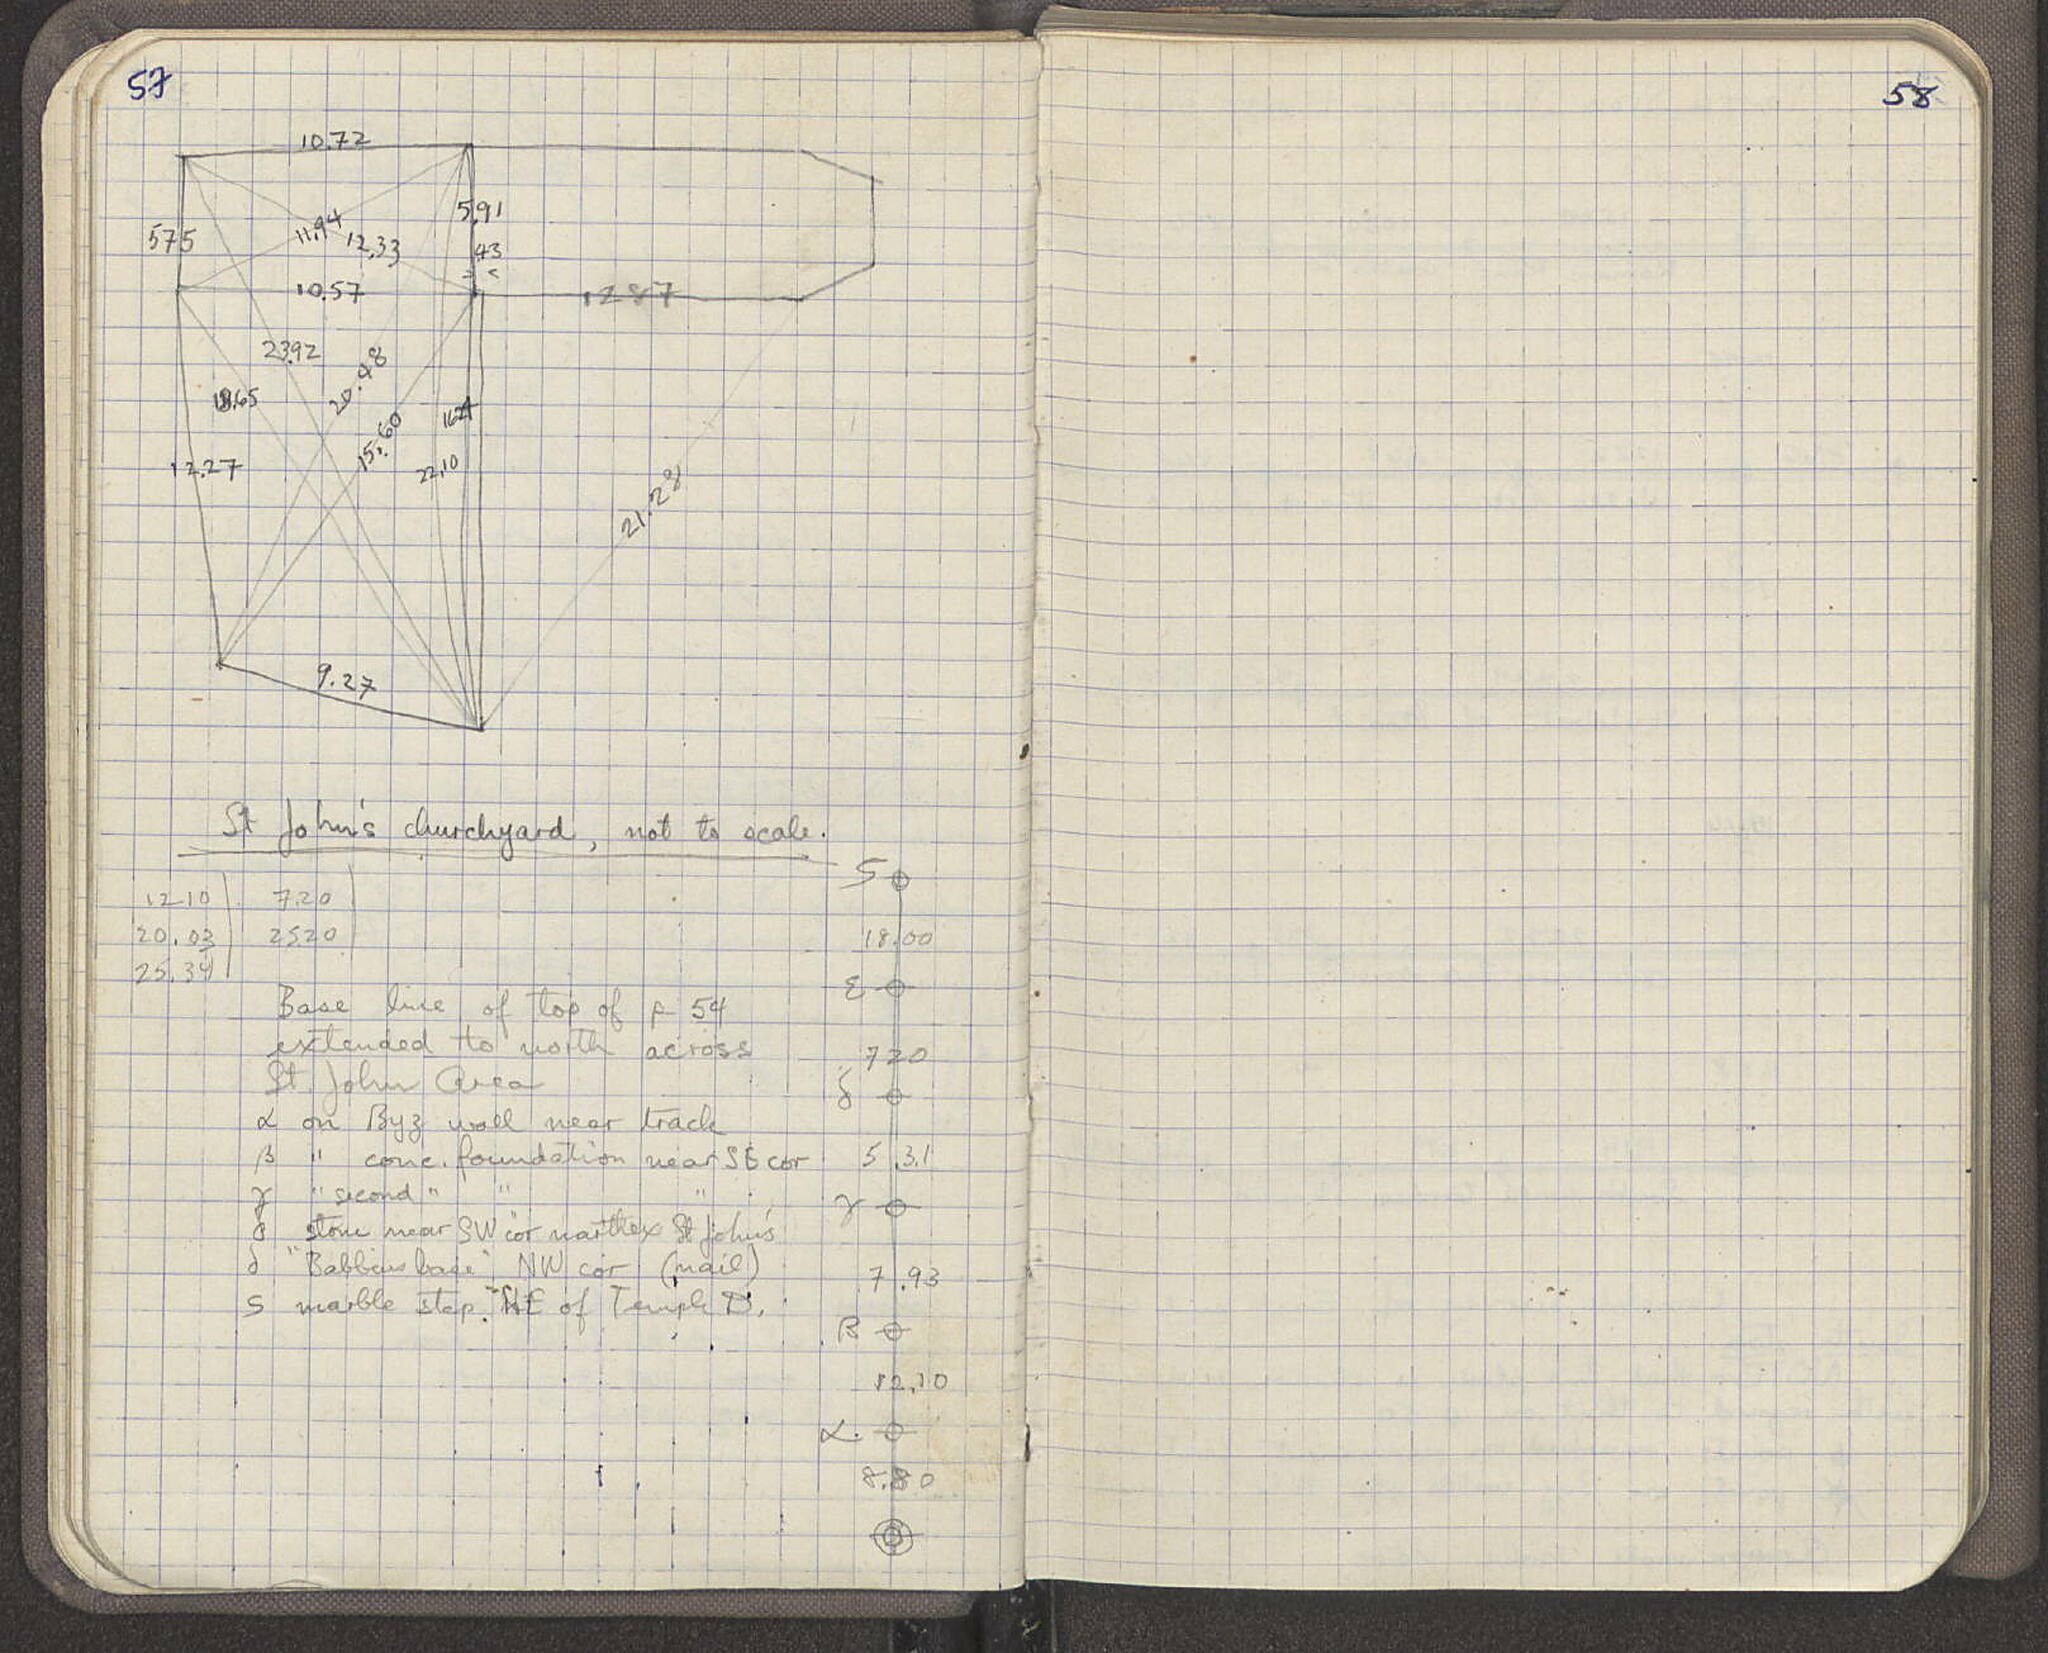 57
58
10.72
5.91
11.94
12.33
.43
575
10.57
1287
23.92
20.48
18.65
15.60
16.24
12.27
22.10
21.28
9.27
St John's churchyard, not to scale.
12.10 7.20
20.03 25.20
25.34
Base line of top of p 54
extended to north across
St. John Area
α on Byz wall near track
β " conc. foundation near SE cor
γ " second " " "
δ stone near SW cor narthex St John's
δ "Babbins base" NW cor (nail)
S marble step. NE of Temple D.
S
18.00
ε
7 20
δ
5.31
γ
7.93
β
12.10
α
8.80